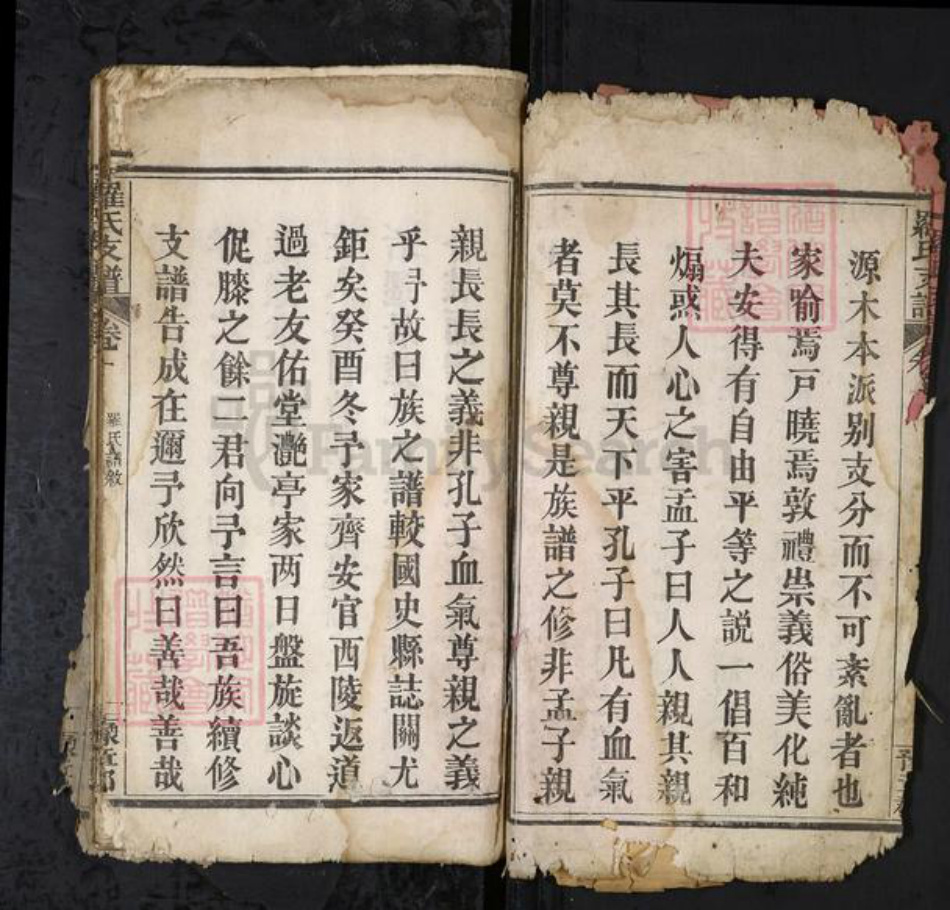 羅氏支譜
源木本派別支分而不可紊亂者也
家喻焉戸曉焉敦禮崇義俗美化純
夫安得有自由平等之説一倡百和
煽惑人心之害孟子曰人人親其親
長其長而天下平孔子曰凡有血氣
者莫不尊親是族譜之修非孟子親
親長長之義非孔子血氣尊親之義
乎予故曰族之譜較國史縣誌關尤
鉅矣癸酉冬予家齊安官西陵返道
過老友佑堂灔亭家两日盤旋談心
促膝之餘二君向予言曰吾族續修
支譜告成在邇予欣然曰善哉善哉
羅氏支譜
卷一
羅氏譜敘
豫章郡
FamilySearch